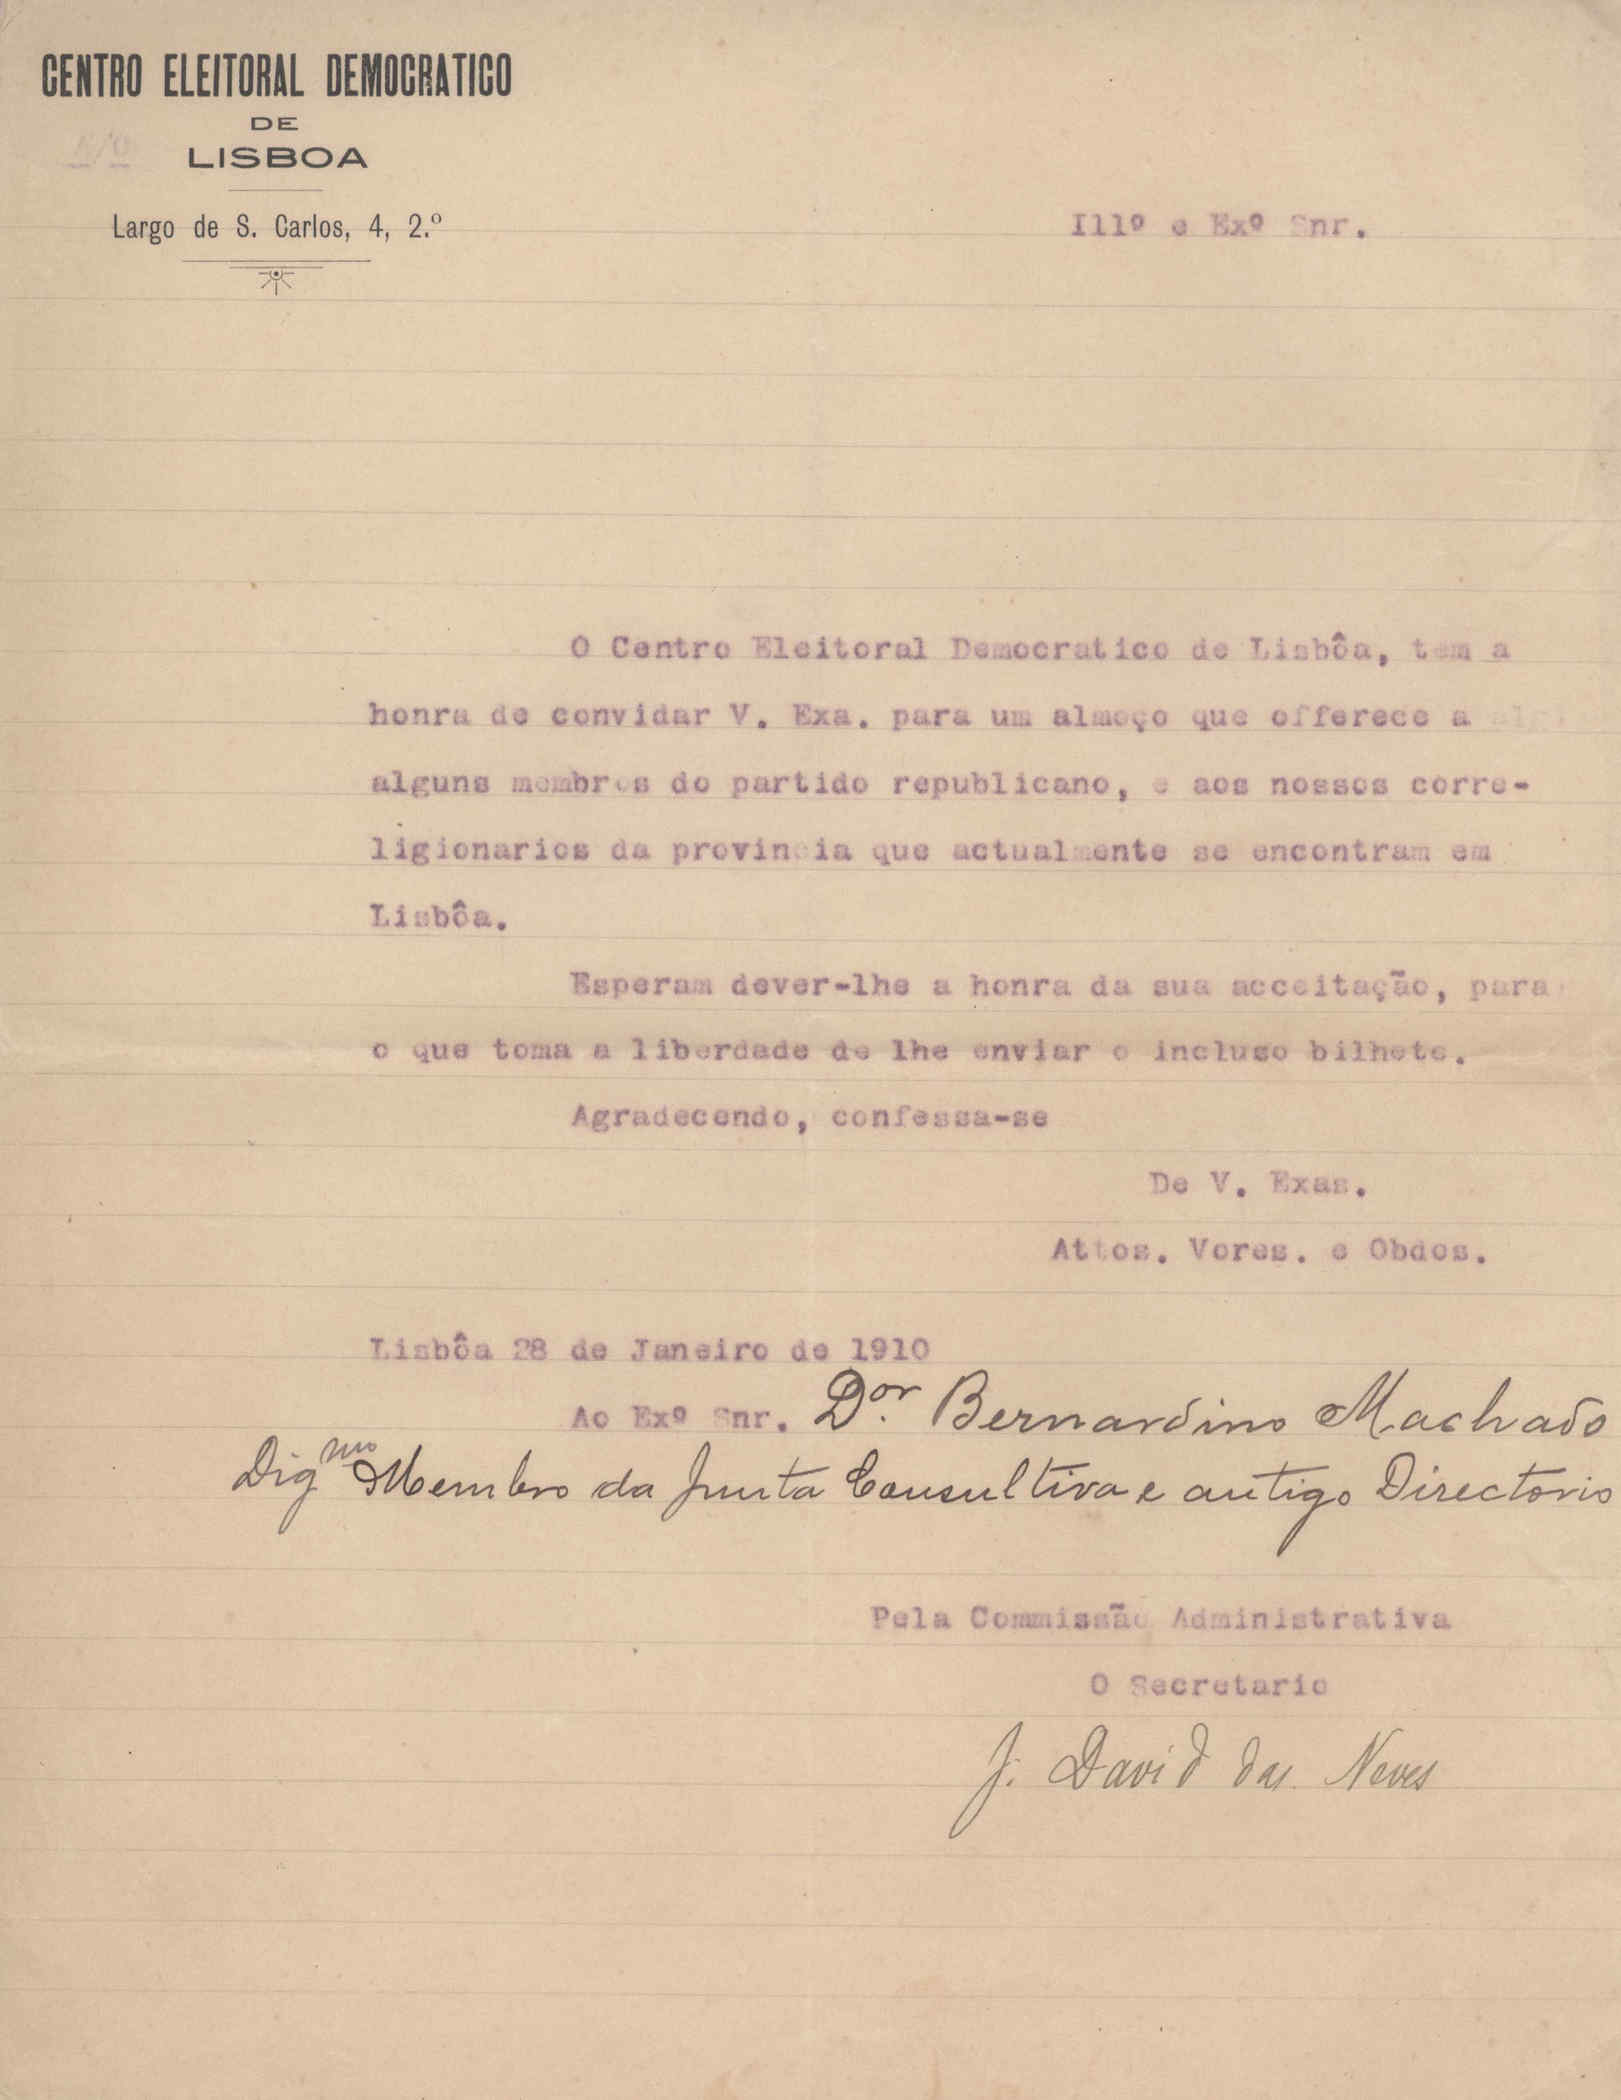 CENTRO ELEITORAL DEMOCRATICO
DE
LISBOA
Largo de S. Carlos, 4, 2.º
Illº e Exº Snr.
O Centro Eleitoral Democratico de Lisbôa, tem a
honra de convidar V. Exa. para um almoço que offerece a
alguns membros do partido republicano, e aos nossos corre-
ligionarios da provincia que actualmente se encontram em
Lisbôa.
Esperam dever-lhe a honra da sua acceitação, para
o que toma a liberdade de lhe enviar o incluso bilhete.
Agradecendo, confessa-se
De V. Exas.
Attos. Vores. e Obdos.
Lisbôa 28 de Janeiro de 1910
Ao Exº Snr. Dor. Bernardino Machado
Digmo Membro da Junta Consultiva e antigo Directorio
Pela Commissão Administrativa
O Secretario
J. David das Neves